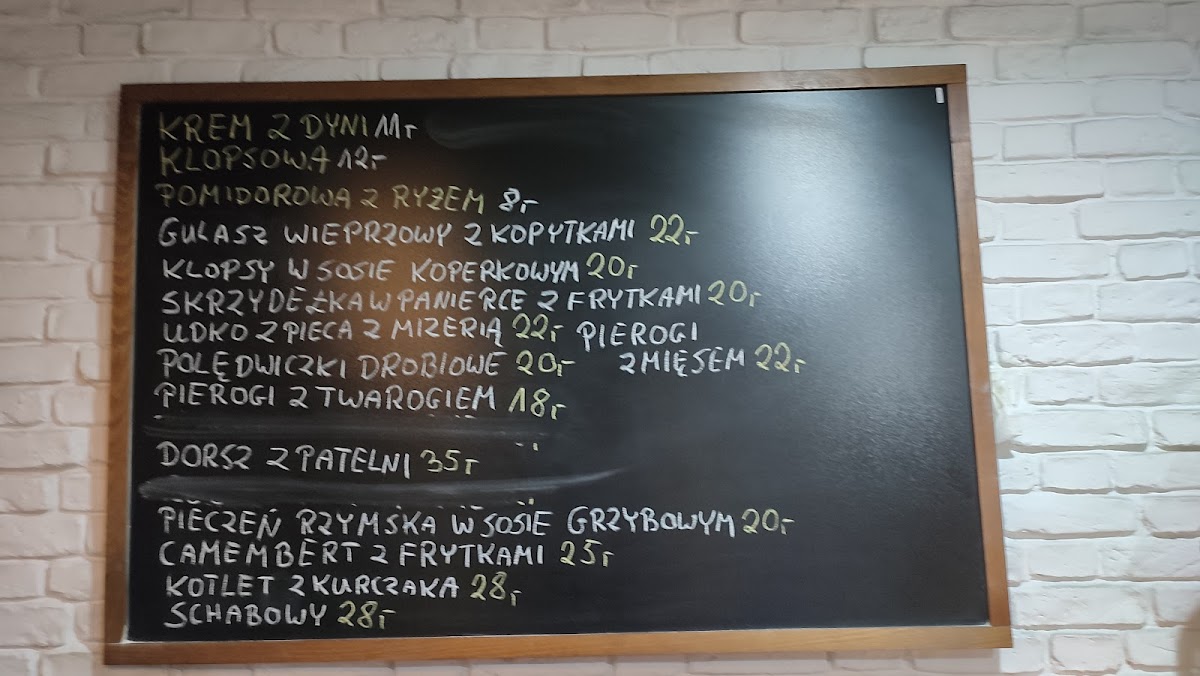 KREM Z DYNI 11,-
KLOPSOWA 12,-
POMIDOROWA Z RYŻEM 8,-
GULASZ WIEPRZOWY Z KOPYTKAMI 22,-
KLOPSY W SOSIE KOPERKOWYM 20,-
SKRZYDEŁKA W PANIERCE Z FRYTKAMI 20,-
UDKO Z PIECA Z MIZERIĄ 22,- PIEROGI
POLĘDWICZKI DROBIOWE 20,- Z MIĘSEM 22,-
PIEROGI Z TWAROGIEM 18,-
DORSZ Z PATELNI 35,-
PIECZEŃ RZYMSKA W SOSIE GRZYBOWYM 20,-
CAMEMBERT Z FRYTKAMI 25,-
KOTLET Z KURCZAKA 28,-
SCHABOWY 28,-